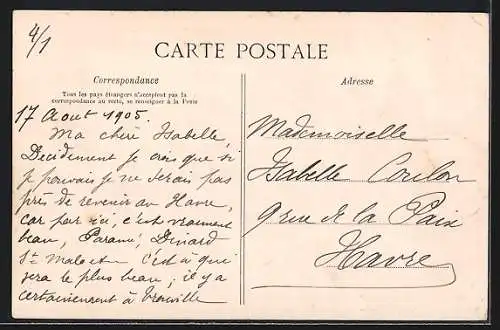 4/1
CARTE POSTALE
Correspondance
Tous les pays étrangers n'acceptent pas la
correspondance au recto, se renseigner à la Poste
17 Aout 1905.
Ma chère Isabelle,
Decidement je crois que si
je pouvais je ne serais pas
près de revenir au Havre,
car par ici, c'est vraiment
beau, Paramé, Dinard
St Malo etc. c'est à qui
sera le plus beau ; il y a
certainement à Trouville
Adresse
Mademoiselle
Isabelle Coulon
9 rue de la Paix
Havre